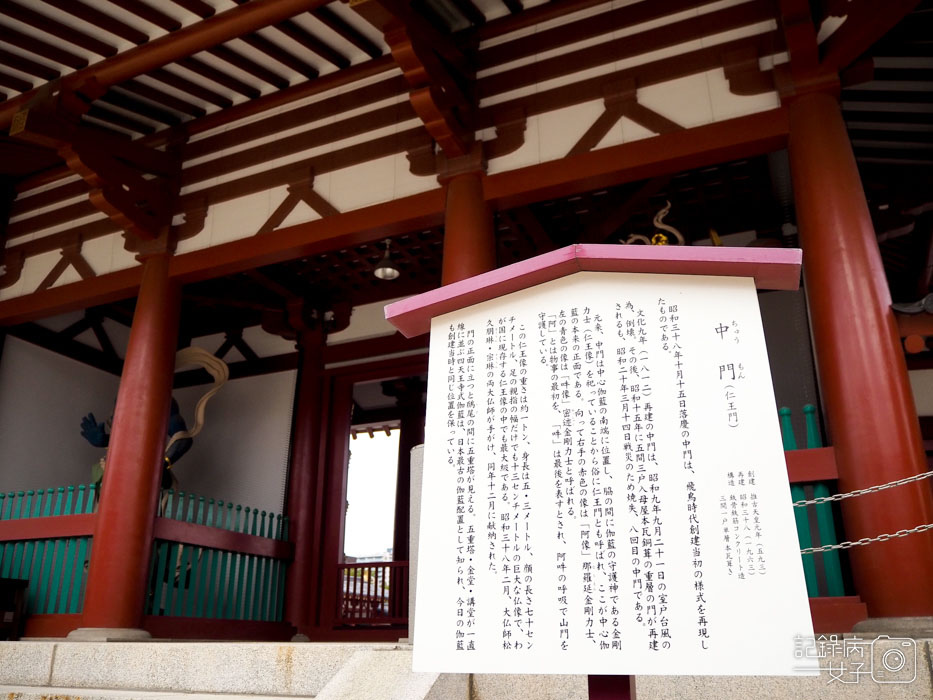 ちゅう もん
中門(仁王門)
創建 推古天皇元年(五九三)
再建 昭和三十八(一九六三)
構造 鉄骨鉄筋コンクリート造
三間一戸単層本瓦葺き
昭和三十八年十月十五日落慶の中門は、飛鳥時代創建当初の様式を再現し
たものである。
文化九年(一八一二)再建の中門は、昭和九年九月二十一日の室戸台風の
為、倒壊。その後、昭和十五年に五間三戸入母屋本瓦銅葺の重層の門が再建
されるも、昭和二十年三月十四日戦災のため焼失、八回目の中門である。
元来、中門は中心伽藍の南端に位置し、脇の間に伽藍の守護神である金剛
力士(仁王像)を祀っていることから俗に仁王門とも呼ばれ、ここが中心伽
藍の本来の正面である。向って右手の赤色の像は「阿像」那羅延金剛力士、
左の青色の像は「吽像」密迹金剛力士と呼ばれる。
「阿」とは物事の最初を、「吽」は最後を表すとされ、阿吽の呼吸で山門を
守護している。
この仁王像の重さは約一トン、身長は五・三メートル、顔の長さ七十セン
チメートル、足の親指の幅だけでも十三センチメートルの巨大な仏像で、わ
が国に現存する仁王像の中でも最大級である。昭和三十八年二月、大仏師松
久朋琳・宗琳の両大仏師が手がけ、同年十二月に献納された。
門の正面に立つと鴟尾の間に五重塔が見える。五重塔・金堂・講堂が一直
線に並ぶ四天王寺式伽藍は、日本最古の伽藍配置として知られ、今日の伽藍
も創建当時と同じ位置を保っている。
記錄病
女子